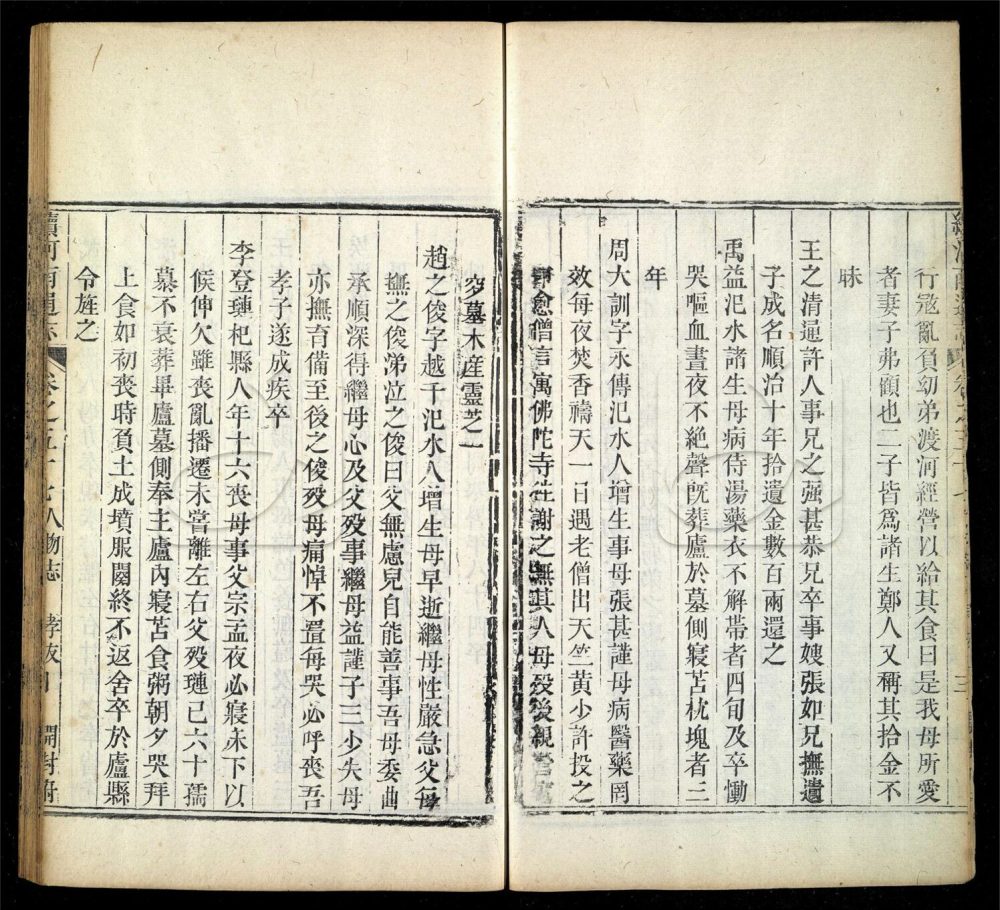 行寇亂負幼弟渡河經營以給其食曰是我母所愛
者妻子弗顧也二子皆為諸生鄭人又稱其拾金不
昧
王之清通許人事兄之强甚恭兄卒事嫂張如兄撫遺
子成名順治十年拾遺金數百兩還之
禹益汜水諸生母病侍湯藥衣不解帶者四旬及卒慟
哭嘔血晝夜不絶聲既葬廬於墓側寢苫枕塊者三
年
周大訓字永傳汜水人增生事母張甚謹母病醫藥罔
效每夜焚香禱天一日遇老僧出天竺黃少許投之
愈僧言寓佛陀寺往謝之無其人母殁後親營
窆墓木産靈芝一
趙之俊字越千汜水人增生母早逝繼母性嚴急父每
撫之俊涕泣之俊曰父無慮兒自能善事吾母委曲
承順深得繼母心及父殁事繼母益謹子三少失母
亦撫育備至後之俊殁母痛悼不置每哭必呼喪吾
孝子遂成疾卒
李登璉杞縣人年十六喪母事父宗孟夜必寢牀下以
候伸欠雖喪亂播遷未嘗離左右父殁璉已六十孺
慕不衰葬畢廬墓側奉主廬內寢苫食粥朝夕哭拜
上食如初喪時負土成墳服闋終不返舍卒於廬縣
令旌之
續河南通志 卷之五十七人物志 孝友 開封府